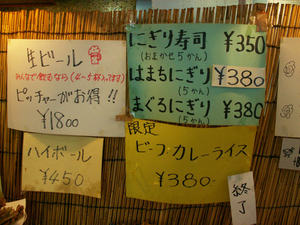 生ビール
みんなで飲むなら(4~5杯入ってます)
ピッチャーがお得!!
¥1800
ハイボール
¥450
にぎり寿司 ¥350
(おまかせ5かん)
はまちにぎり ¥380
(5かん)
まぐろにぎり ¥380
(5かん)
限定
ビーフ・カレーライス
¥380-
終了